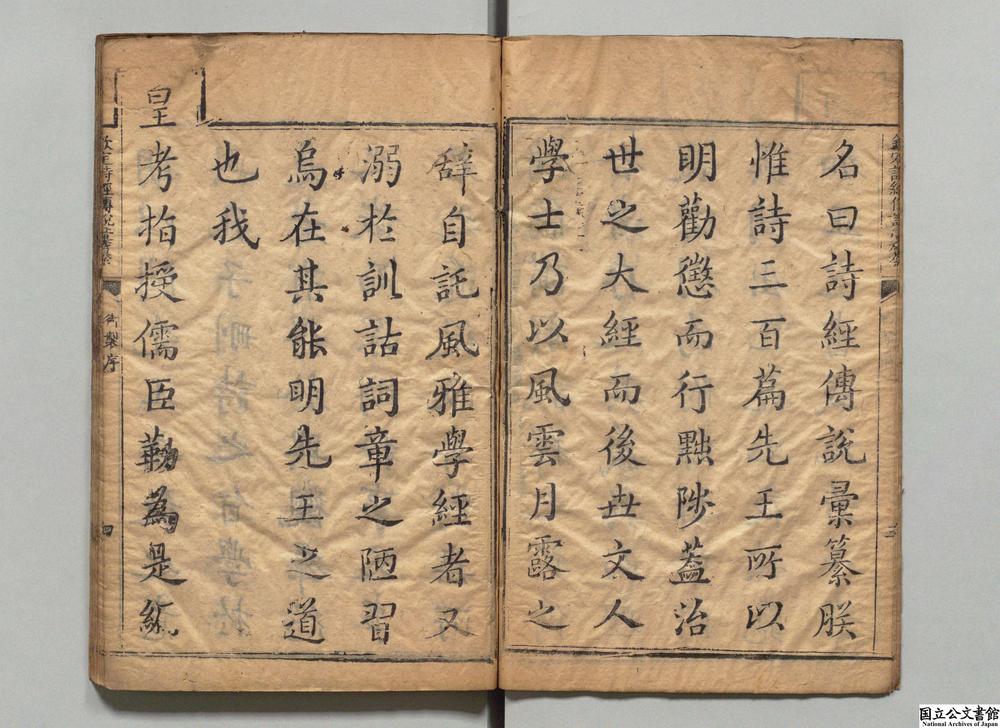 名曰詩經傳説彙纂朕
惟詩三百篇先王所以
明勸懲而行黜陟蓋治
世之大經而後世文人
學士乃以風雲月露之
辭自託風雅學經者又
溺於訓詁詞章之陋習
烏在其能明先王之道
也我
皇考指授儒臣勒為是編
欽定詩經傳說彙纂
御製序
四
三
国立公文書館
National Archives of Japan